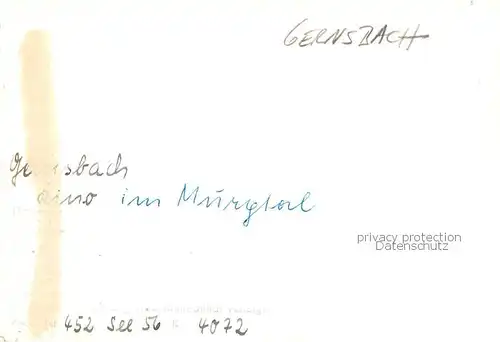 GERNSBACH
Gernsbach
im Murgtal
privacy protection
Datenschutz
452 See 56 4072